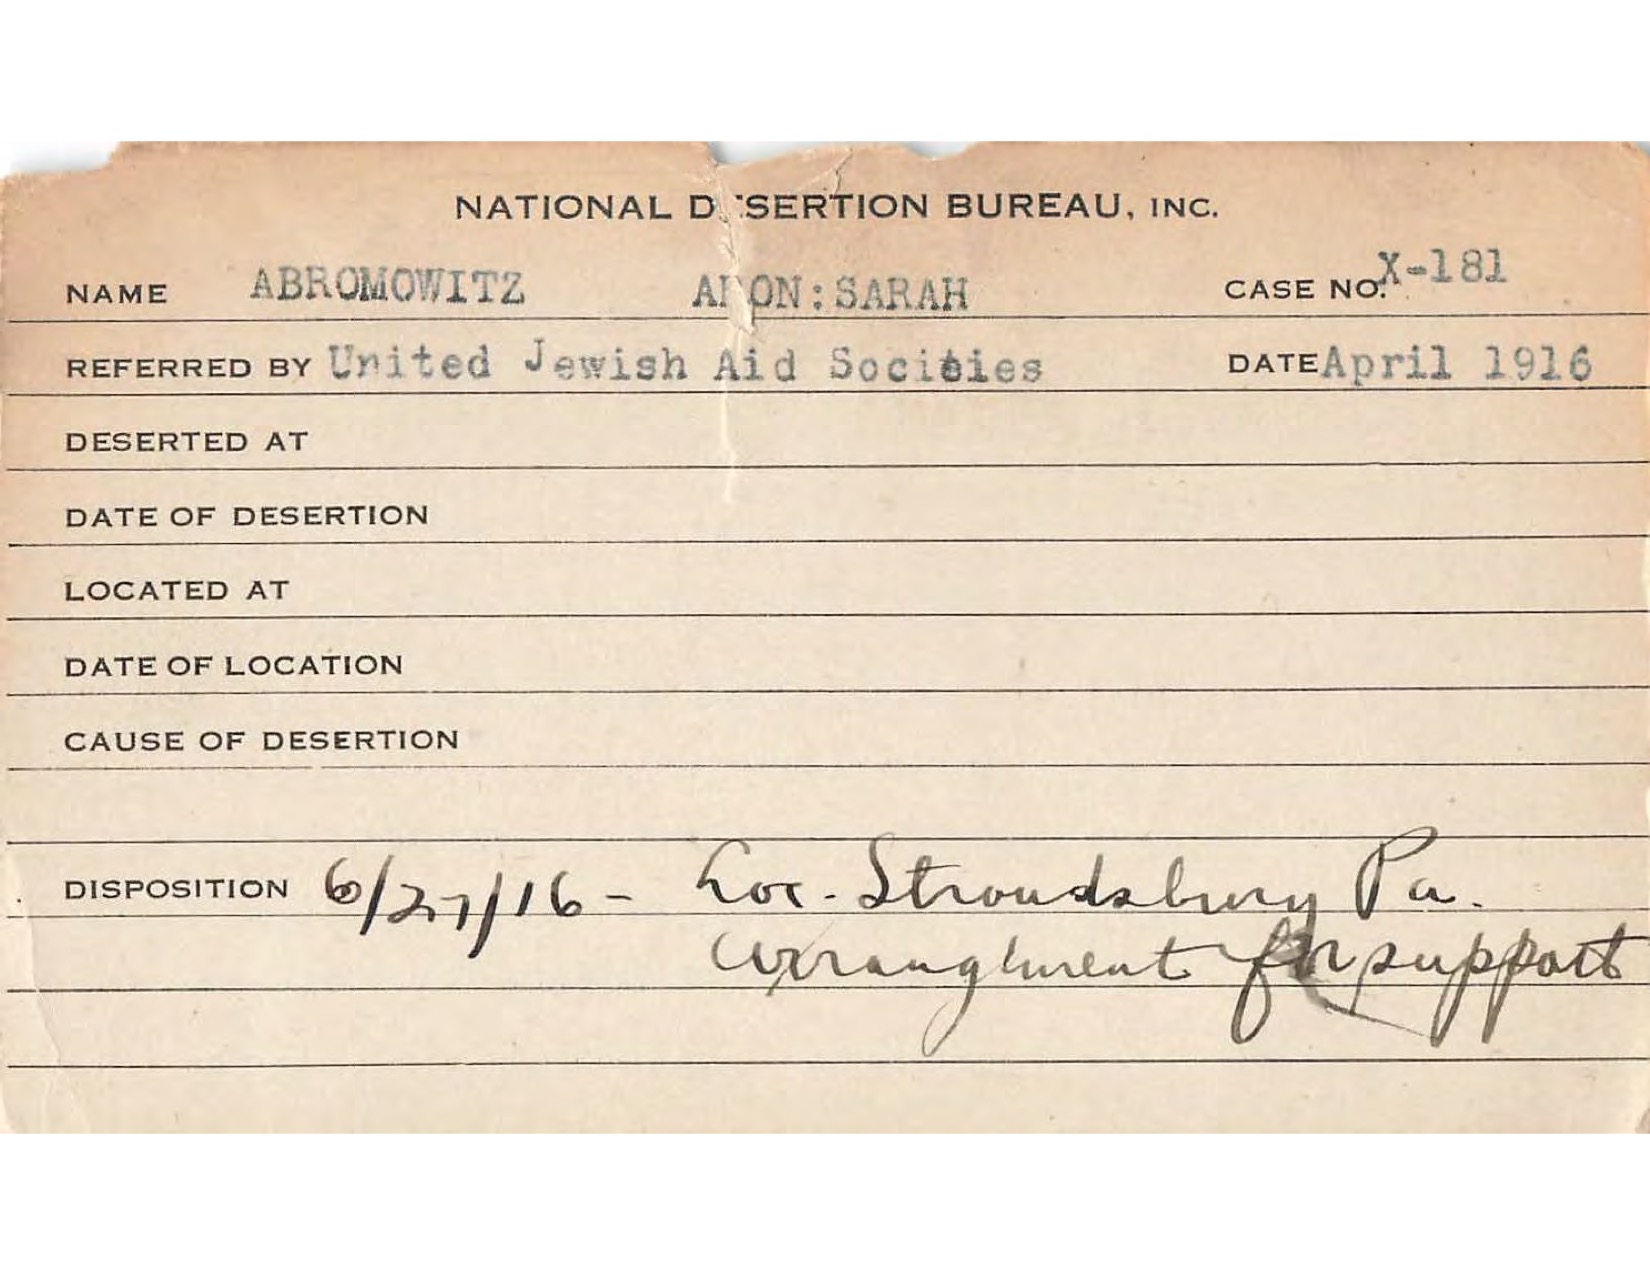 NATIONAL D SERTION BUREAU, INC.
NAME ABROMOWITZ A ON:SARAH CASE NO. X-181
REFERRED BY United Jewish Aid Societies DATE April 1916
DESERTED AT
DATE OF DESERTION
LOCATED AT
DATE OF LOCATION
CAUSE OF DESERTION
DISPOSITION 6/27/16 - Loc. Stroudsburg Pa.
Arrangement for support